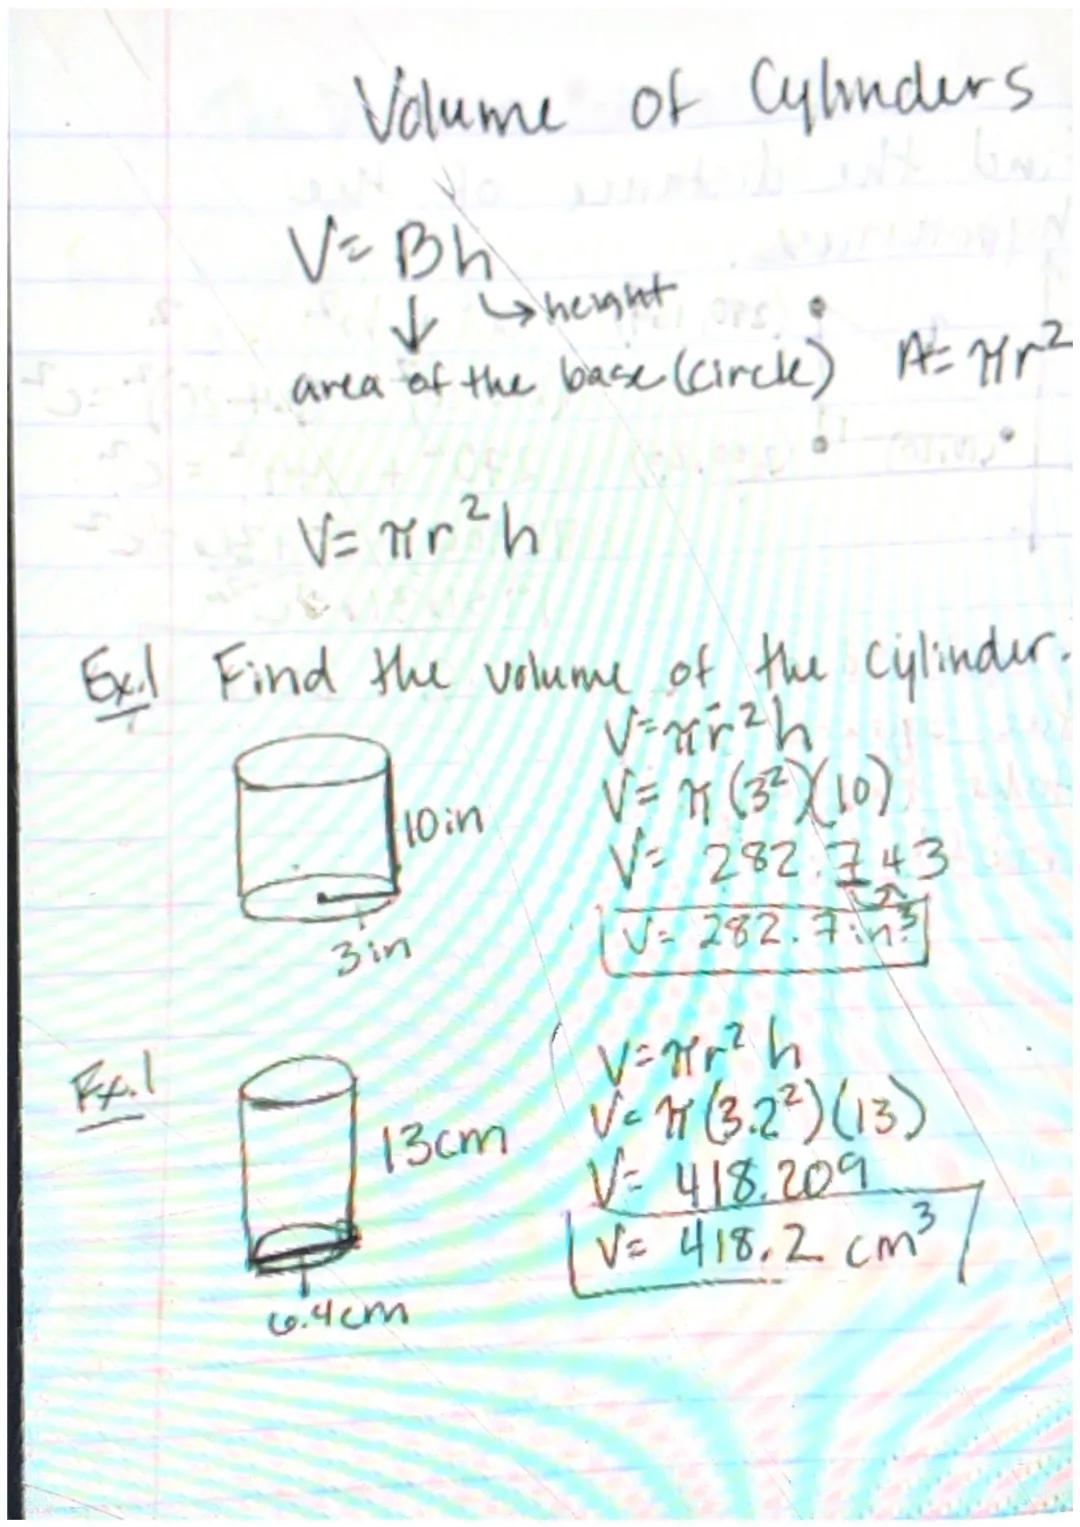 Volume of Cylinders
V= Bh
height
area of the base (circle) A= πr²
V= πr²h
Ex.1 Find the volume of the cylinder.
10in
3in
V=πr²h
V= π(3²)(10)
V= 282.743
V= 282.7in³
Ex.1
13cm
6.4cm
V=πr²h
V= π(3.2²)(13)
V= 418.209
V= 418.2 cm³